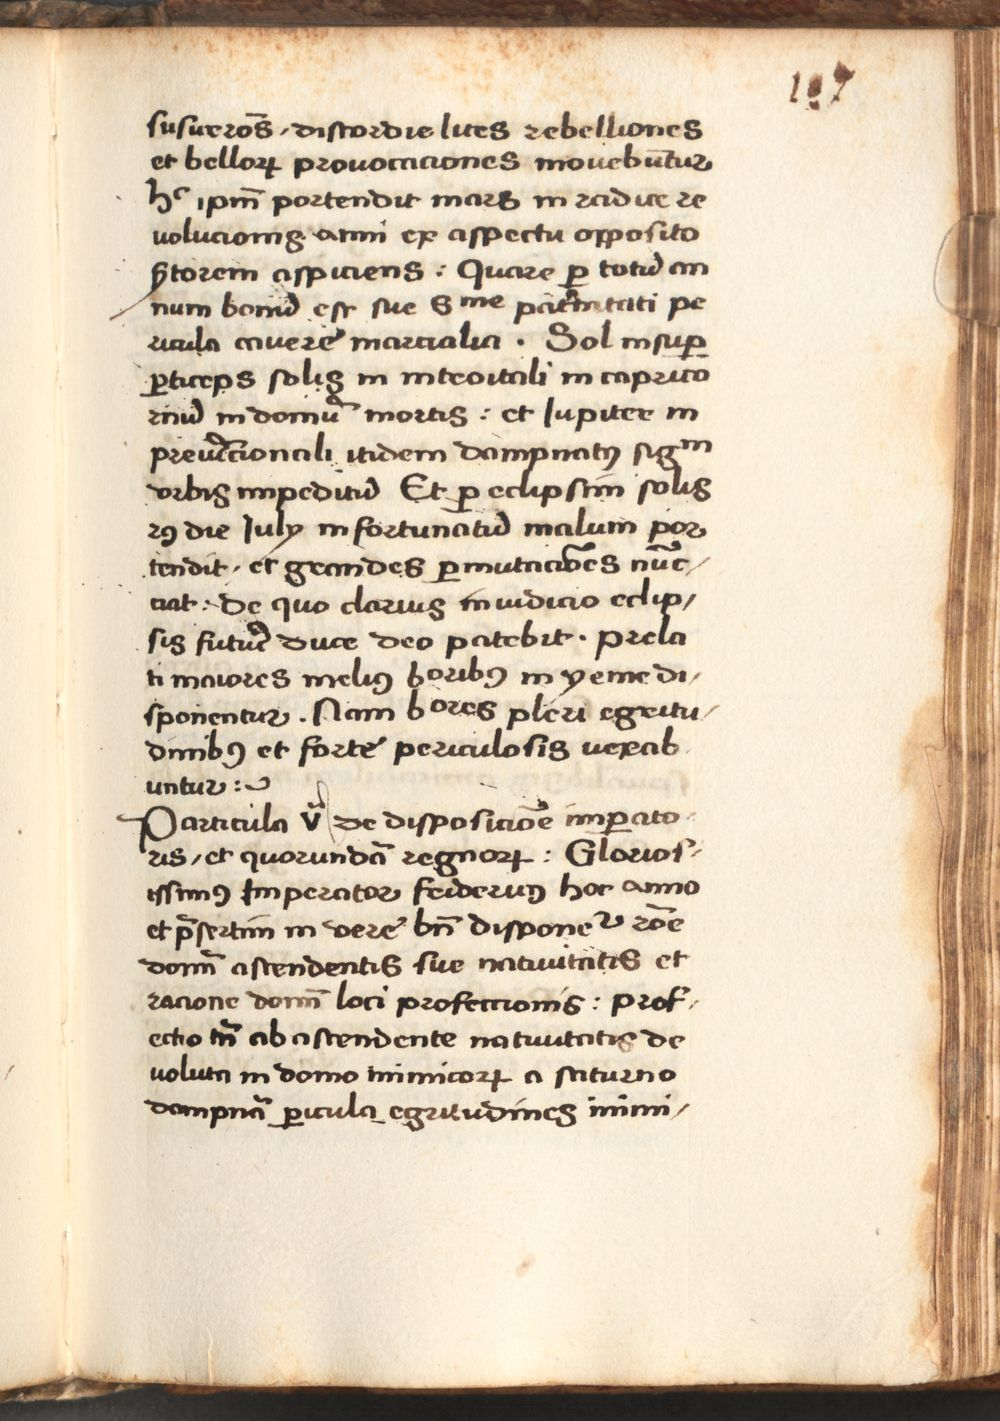 107
susurrōs, discordie lites rebelliones
et belloꝝ prouocaciones mouebūtur
hᶜ ipm̄ portendit mars in radice re
uolucionis anni ex aspectu opposito
aspiciens : Quare ꝑ totū an
num bonū est sue Sme paternitati pe
ricula cauere marcialia . Sol insuꝑ
ꝑticeps solis in introitali in caprico
rnū in domū mortis : et Iupiter in
itidem dampnatꝰ
orbis impeditū Et ꝑ eclipsim solis
die Iuly infortunatū malum por
tendit, et grandes ꝑmutaciōes nūc/
ciat : De quo clarius in iudicio eclip/
sis futurē duce deo patebit . Prela
ti maiores meliꝰ horibꝰ in yeme di/
sponentur . Nam bores pleri egritu/
dinibꝰ et forte periculosis uexab
untur :
Particula vᵃ de disposiciōe imꝑato
ris, et quorundā regnoꝝ : Glorios/
issimꝰ Imperator fridericꝰ hoc anno
et p̄sertim in vere bn̄ disponeᵗ rōe
domī ascendentis sue natiuitatis et
racione domī loci profeccionis : Prof/
ectio tn̄ ab ascendente natiuitatis de
uoluta in domo inimicoꝝ a saturno
dampnā ꝑicula egritudines inimi/